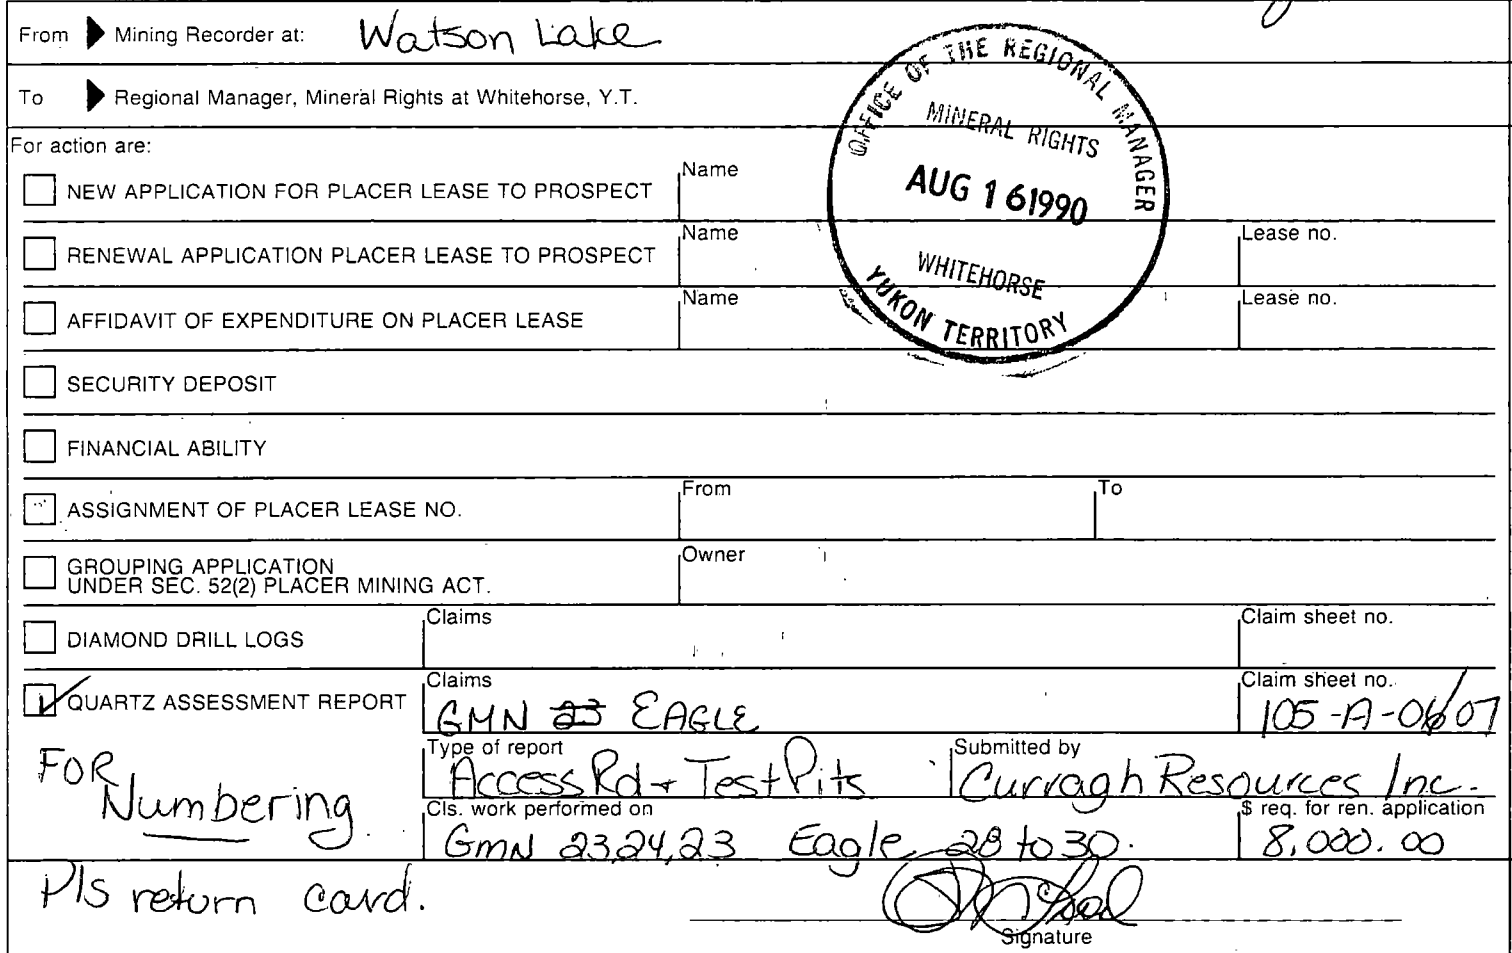 From Mining Recorder at: Watson Lake
To Regional Manager, Mineral Rights at Whitehorse, Y.T.
OFFICE OF THE REGIONAL MANAGER
MINERAL RIGHTS
AUG 16 1990
WHITEHORSE
YUKON TERRITORY
For action are:
NEW APPLICATION FOR PLACER LEASE TO PROSPECT Name
RENEWAL APPLICATION PLACER LEASE TO PROSPECT Name Lease no.
AFFIDAVIT OF EXPENDITURE ON PLACER LEASE Name Lease no.
SECURITY DEPOSIT
FINANCIAL ABILITY
ASSIGNMENT OF PLACER LEASE NO. From To
GROUPING APPLICATION Owner
UNDER SEC. 52(2) PLACER MINING ACT.
DIAMOND DRILL LOGS Claims Claim sheet no.
QUARTZ ASSESSMENT REPORT Claims Claim sheet no.
GMN 23 EAGLE 105-A-06/07
Type of report Submitted by
FOR Access Rd + Test Pits Curragh Resources Inc.
Numbering Cls. work performed on $ req. for ren. application
GMN 23,24,23 Eagle 28 to 30. 8,000.00
Pls return card.
Signature